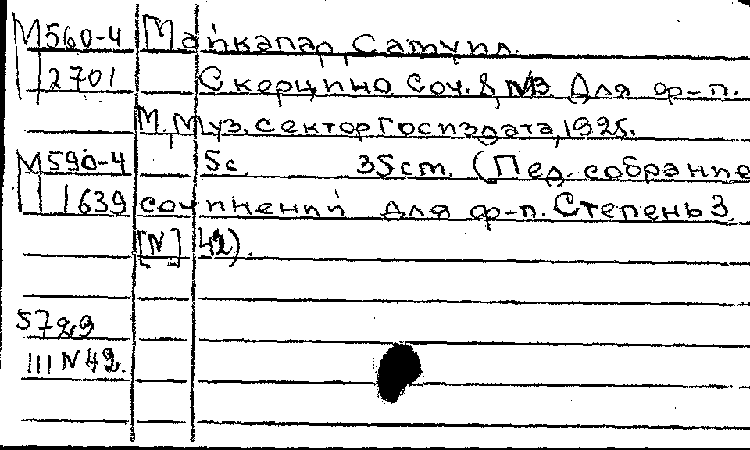 М560-4 Майкапар, Самуил.
2701 Скерцино Соч. 8, №3 Для ф-п.
М., Муз. сектор Госиздата, 1925.
М590-4 5с. 35cm. (Пед. собрание
1639 сочинений для ф-п. Степень 3
[N] 42).
5729
III N 42.